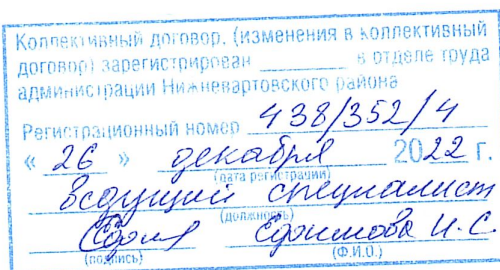 Коллективный договор, (изменения в коллективный
договор) зарегистрирован ________ в отделе труда
администрации Нижневартовского района
Регистрационный номер 438/352/4
« 26 » декабря 2022 г.
(дата регистрации)
ведущий специалист
(должность)
(подпись) (Ф.И.О.)